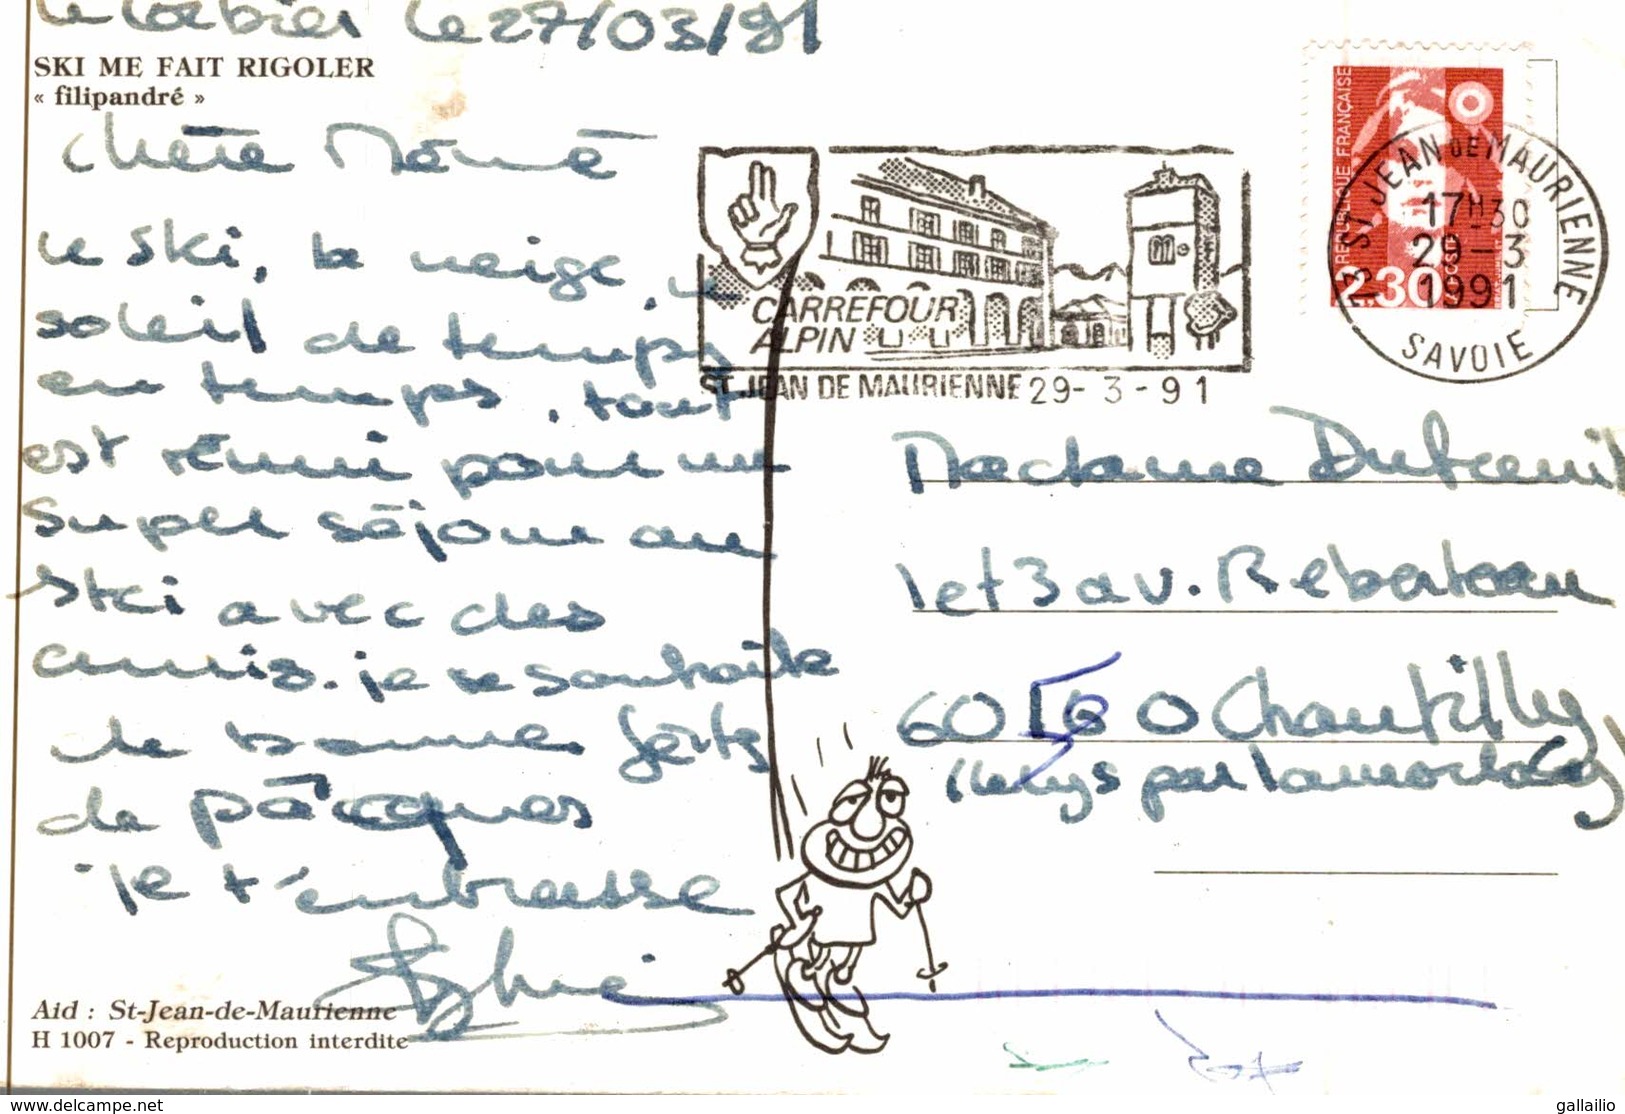 Le Corbier le 27/03/91
SKI ME FAIT RIGOLER
« filipandré »
Chère Mémé
le ski, la neige, le
soleil de temps
en temps, tout
est réuni pour un
super séjour au
ski avec des
amis. je te souhaite
de bonnes fêtes
de pâcques
je t'embrasse
Aid : St-Jean-de-Maurienne
H 1007 - Reproduction interdite
CARREFOUR
ALPIN
ST JEAN DE MAURIENNE 29-3-91
REPUBLIQUE FRANÇAISE
2.30
73 ST JEAN DE MAURIENNE
17H30
29-3
1991
SAVOIE
Madame Dubreuil
1 et 3 av.
Chantilly
par Lamorlaye
www.delcampe.net
gallailio